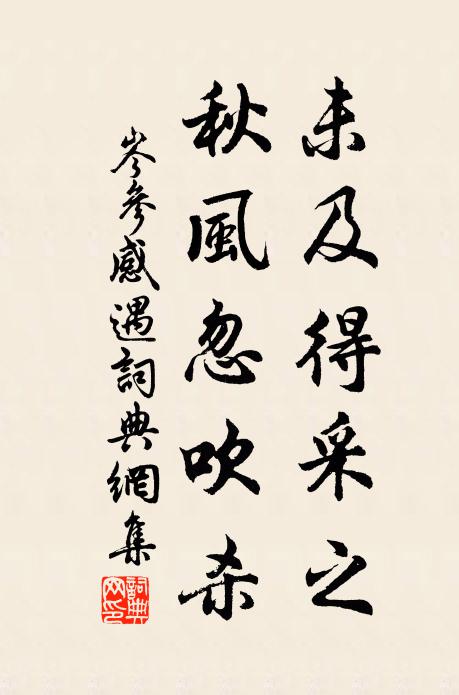 未及得采之
秋風忽吹杀
岑參感遇詞典網集
詞典
网印